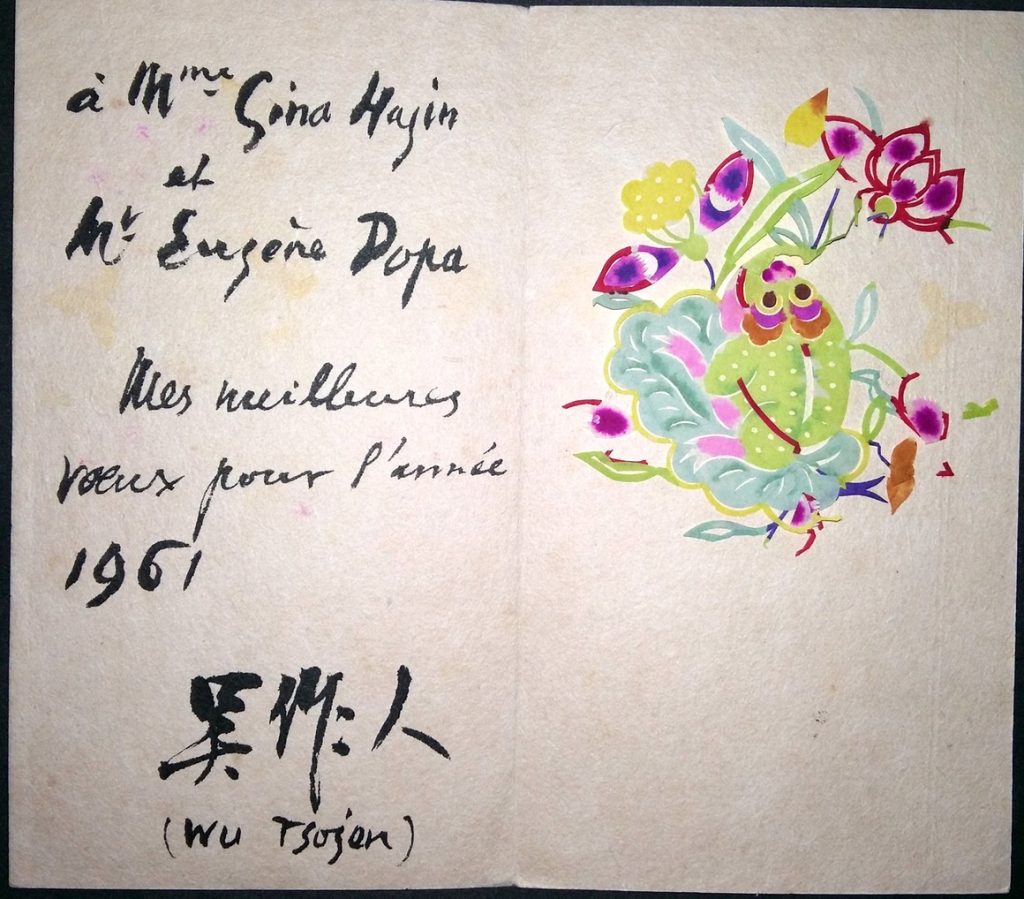 à Mme Gina Hagin
et
Mr Eugène Dopa
Mes meilleures
vœux pour l'année
1961
吴作人
(Wu Tsojen)